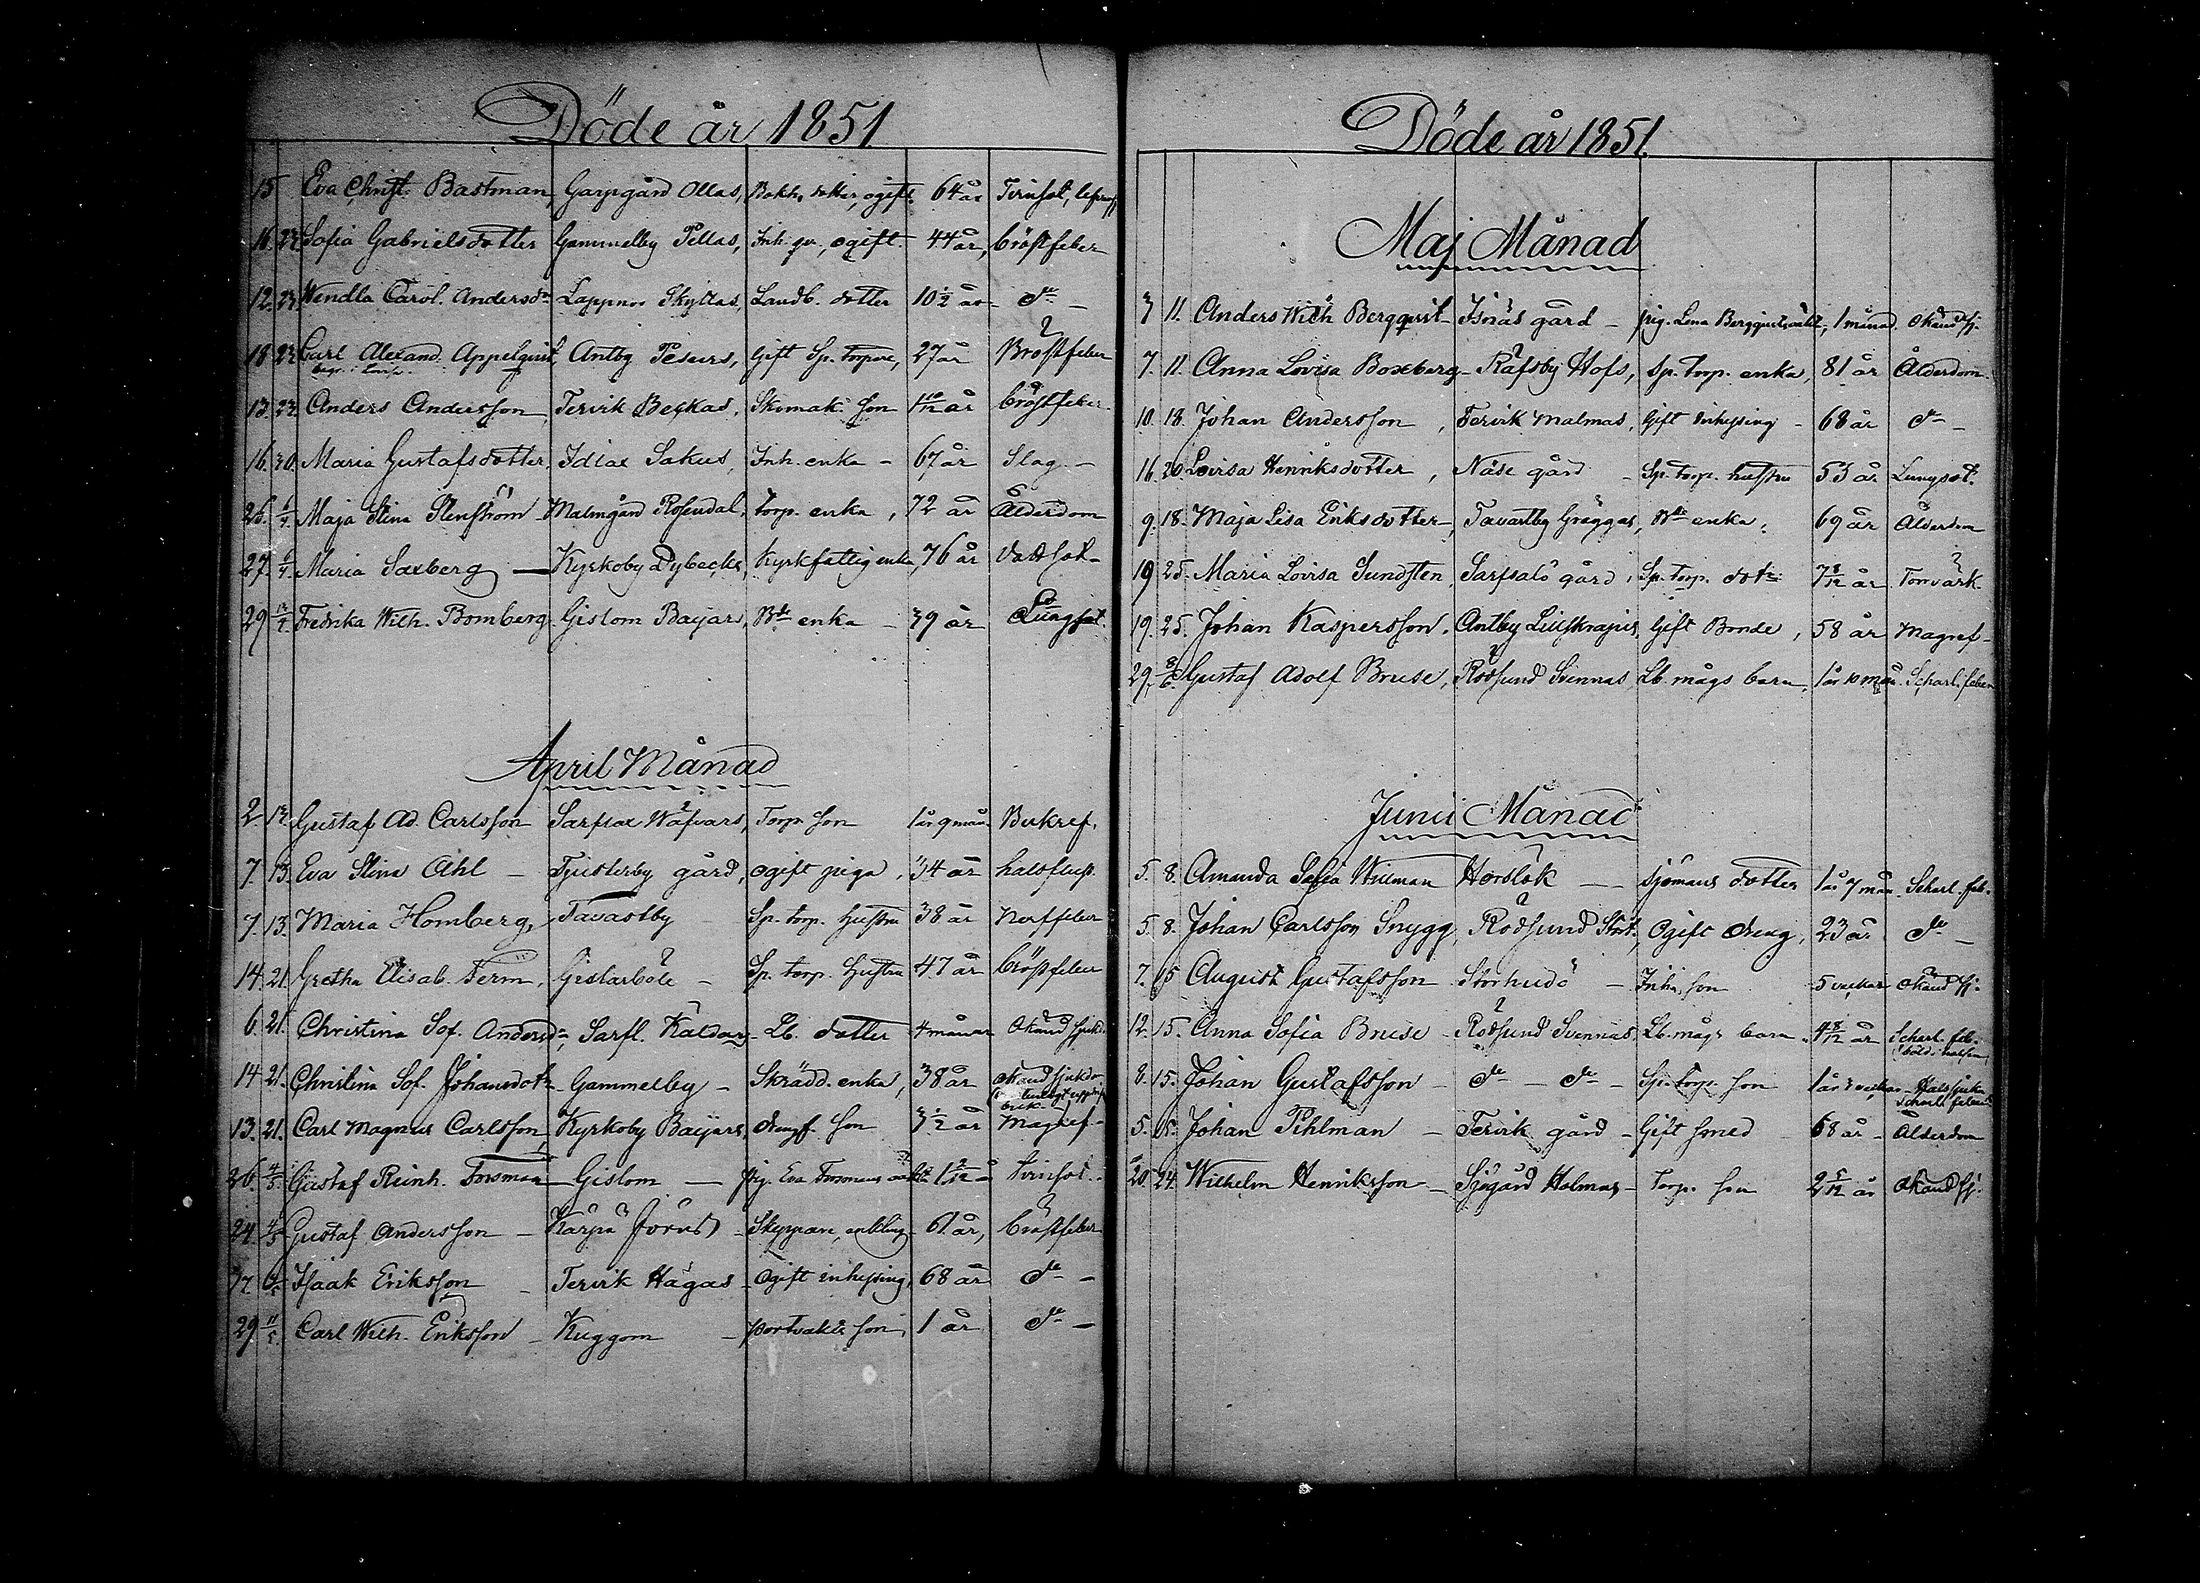 Döde år 1851
15 Eva Christ. Bastman, Garpgård Ollas, Bokh. dotter, ogift 64 år Tärinsot,
16. 23. Sofia Gabrielsdotter Gammelby Pellas, Inh. qv., ogift. 44 år, bröstfeber
12. 23. Wendla Carol. Andersdr Lappnor Skyttas, Landb. dotter 10 1/2 år do
18. 23. Carl Alexand. Appelquist, Antby Pesars, Gift Sp. torpare, 27 år Bröstfeber
begr. i
13. 23. Anders Andersson Tervik Beckas, Skomak. son 1 10/12 år bröstfeber
16. 30. Maria Gustafsdotter, Idlax Sakus, Inh. enka - 67 år Slag -
26. 6/4 Maja Stina Stenström Malmgård Rosendal, torp. enka, 72 år Ålderdom
27. 6/4 Maria Saxberg - Kyrkoby Dybecks, Kyrkfattig enka, 76 år Vattsot -
29 13/4 Fredrika Wilh. Bomberg Gislom Bajars, Bde enka - 39 år Lungsot
April Månad
2. 13. Gustaf Ad. Carlsson Sarflax Wäfvars, Torp. son 1 år 9 mån. Bukref.
7. 13. Eva Stina Ahl - Tjusterby gård, ogift piga, 34 år halsfluss
7. 13. Maria Homberg, Tavastby - Sp. torp. hustru 38 år Nerffeber
14. 21. Gretha Elisab. Term, Gislarböle - Sp. torp. hustru 47 år bröstfeber
6. 21. Christina Sof. Andersdr, Sarfl. Käldars - Lb. dotter 4 månar Okänd sjukd.
14. 21. Christina Sof. Johansdotr - Gammelby - Skrädd. enka, 38 år okänd sjukdom
13. 21. Carl Magnus Carlsson Kyrkoby Bajars, drengs son 3 1/2 år Magref -
26. 4/5 Gustaf Reinh. Forsman - Gislom - pig. Eva Forsmans oäkta 1 2/12 år tvinsot
24. 4/5 Gustaf Andersson - Kärpä Jörns - Skeppare, enkling 61 år, bröstfeber
Isaak Eriksson - Tervik Hägas - Ogift inhysing, 68 år do -
29. 11/5 Carl Wilh. Eriksson - Kuggom - portvakts son, 1 år do -
Döde år 1851.
Maj Månad
3 11. Anders Wilh Bergqvist - Isnäs gård - pig. Lena Bergqvists oäkta, 1 månad. okänd sj.
7. 11. Anna Lovisa Boxberg - Räfsby Hofs, Sp. torp. enka, 81 år Ålderdom.
10. 18. Johan Andersson, Tervik Malmas, Gift inhysing - 68 år do -
16. 20. Lovisa Henriksdotter, Näse gård - Sp. torp. hustru 53 år Lungsot.
9. 18. Maja Lisa Eriksdotter - Tavastby Gräggas, Bde enka, 69 år Ålderdom
19 25. Maria Lovisa Sundsten Sarfsalö gård, Sp. torp. dotr 7 8/12 år Torrvärk
19. 25. Johan Kaspersson. Antby Lillskrapus, Gift Bonde, 58 år Magref -
29. 8/6 Gustaf Adolf Bruse, Rödsund Svennas, Lb. mågs barn, 1 år 10 mån. Scharl. feber
Junii Månad
5. 8. Amanda Sofia Willman Horslök - sjömans dotter 1 år 7 mån. Scharl. feb.
5. 8. Johan Carlsson Snygg, Rödsund Stor., Ogift dreng, 23 år do -
7. 15 August Gustafsson Storhudö - Inh. son 5 veckor okänd sj.
12. 15. Anna Sofia Bruse - Rödsund Svennas, Lb. mågs barn - 4 8/12 år Scharl. feb.
böld i halsen
8. 15. Johan Gustafsson - do - do - Sp. torp. son 1 år 3 veckor - Halssjuka
Scharl. feber
5. 15. Johan Pihlman - Tervik gård - Gift smed - 68 år - Ålderdom
20. 24. Wilhelm Henriksson - Sjögård Holmas - Torp. son 2 5/12 år okänd sj.